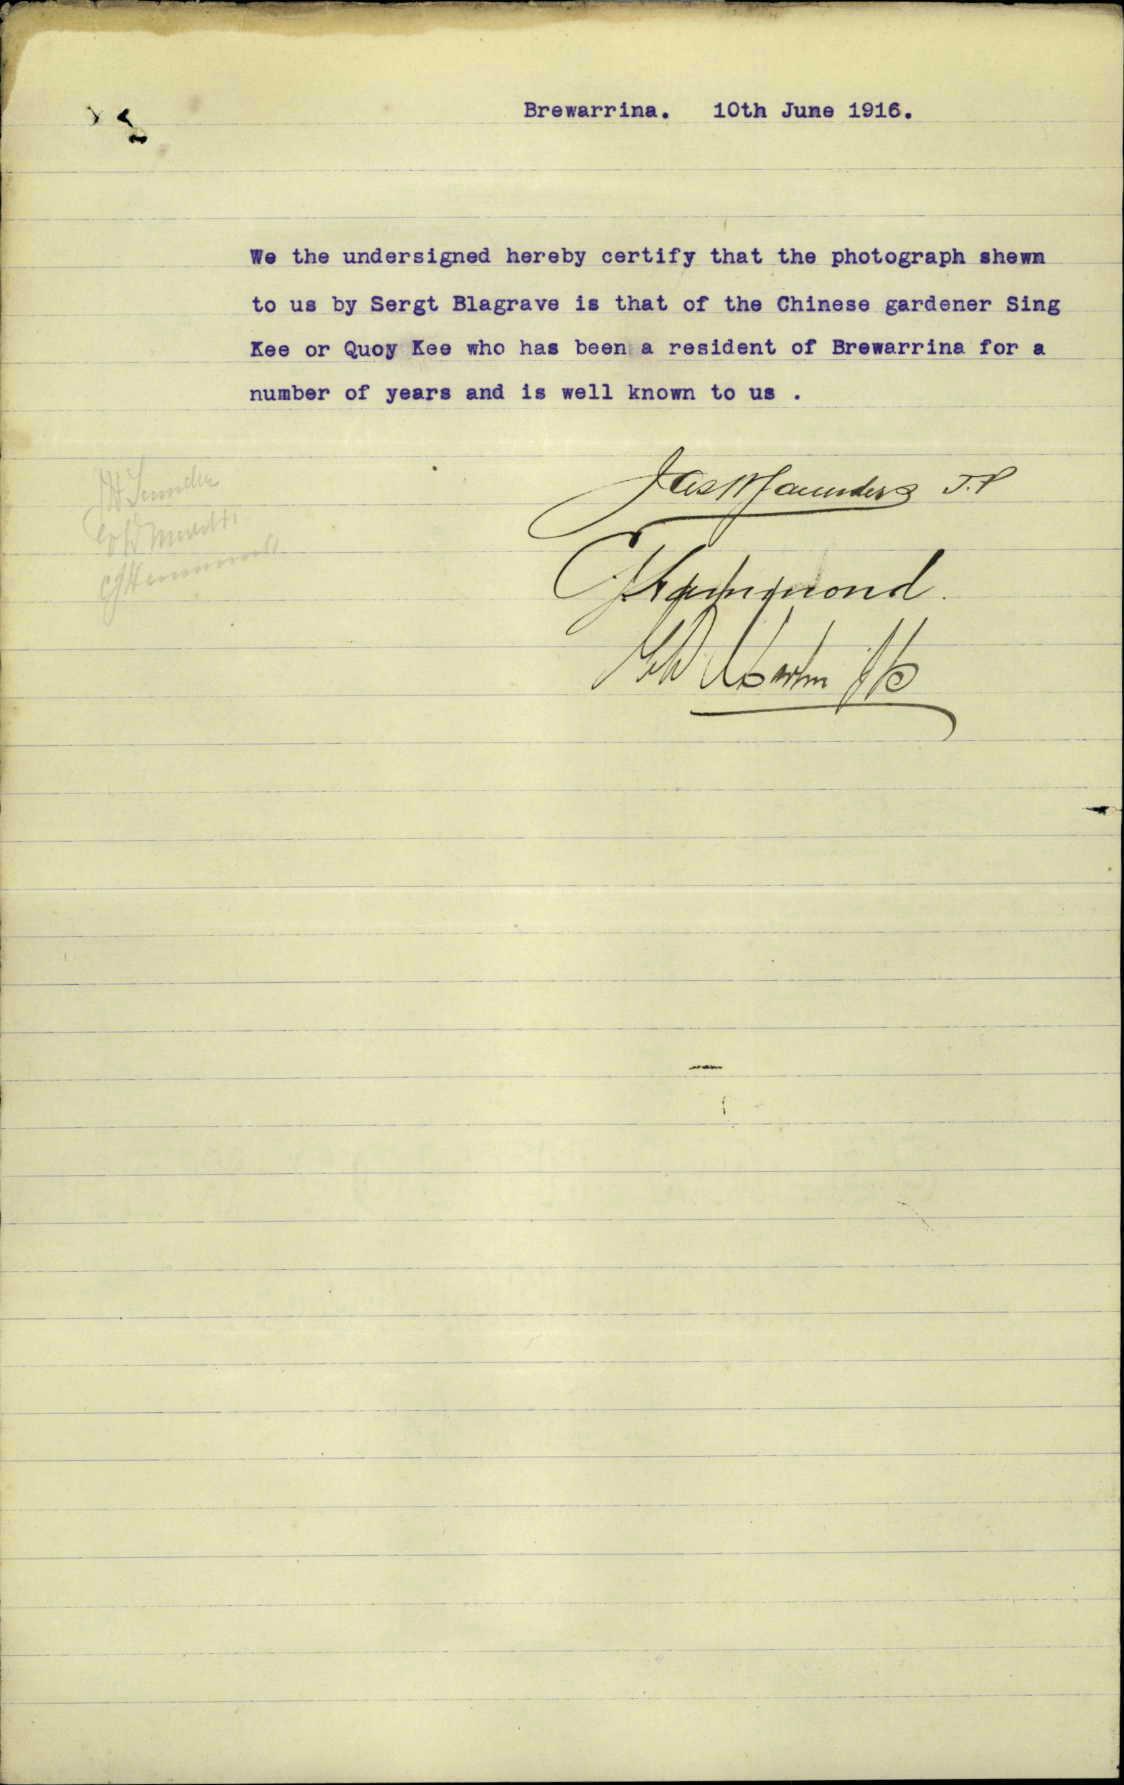 Brewarrina. 10th June 1916.
We the undersigned hereby certify that the photograph shewn
to us by Sergt Blagrave is that of the Chinese gardener Sing
Kee or Quoy Kee who has been a resident of Brewarrina for a
number of years and is well known to us .
Jas W Saunders J.P
CJ Hammond.
CJ Hammond